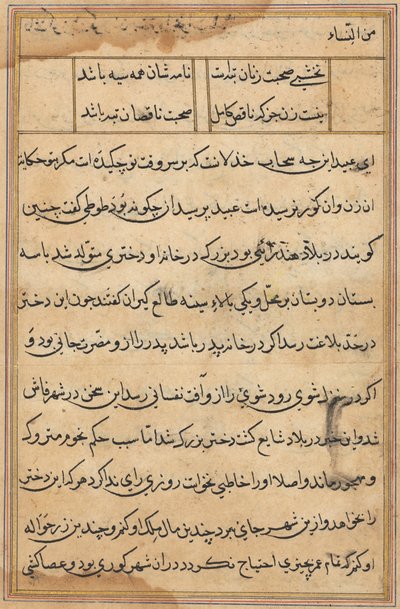 من النساء
نخشبی صحبت زنان تبه است نامه شان همه سیه باشد
نیست زن جز که ناقص کامل صحبت ناقصان تبه باشد
ای عبید این چه سحاب خذلانست که بر سر وقت تو چکیده است مگر بتو حکایت
ان زن وان کور نرسیده است عبید پرسید ان چکونه بود طوطی کفت چنین
کویند در بلاد هند رائی بود بزرک در خانه او دختری متولد شد با سه
بستان دو بستان بر محل و یکی بالاء سینه طالع کیران کفتند چون این دختر
در حد بلاغت رسد اکر در خانه پدر باشد پدر را ازو مضرت جانی بود و
اکر در منزل شوی رود شوی را ازو آفت نفسانی رسد این سخن در شهر فاش
شد و این خبر در بلاد شایع کشت دختر بزرک شد اما سبب حکم نجوم متروک
و مهجور ماند و اصلا او را خاطبی نخواست روزی رای ندا کرد هر که این دختر
را بخواهد و ازین شهر جای ببرد چندین مال ملک او کنم و چندین زر حواله
او کنم که تمام عمر بچیزی احتیاج نکردد در ان شهر کوری بود و عصاکشی